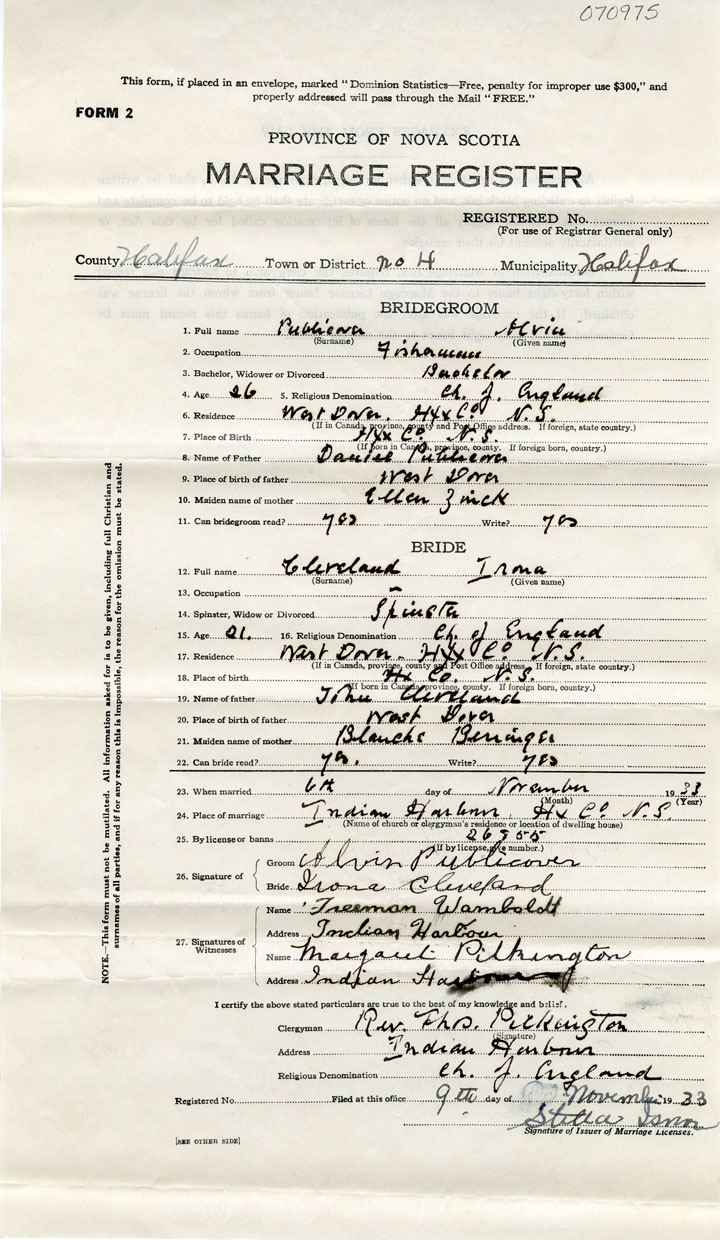 070975
This form, if placed in an envelope, marked "Dominion Statistics—Free, penalty for improper use $300," and
properly addressed will pass through the Mail "FREE."
FORM 2
PROVINCE OF NOVA SCOTIA
MARRIAGE REGISTER
REGISTERED No.
(For use of Registrar General only)
County Halifax Town or District no 4 Municipality Halifax
BRIDEGROOM
1. Full name Publicover Alvin
(Surname) (Given name)
2. Occupation Fisherman
3. Bachelor, Widower or Divorced Bachelor
4. Age 26 5. Religious Denomination Ch. of England
6. Residence West Dover. Hfx Co N.S.
(If in Canada, province, county and Post Office address. If foreign, state country.)
7. Place of Birth Hfx Co N.S.
(If born in Canada, province, county. If foreign born, country.)
8. Name of Father Daniel Publicover
9. Place of birth of father West Dover
10. Maiden name of mother Ellen Zinck
11. Can bridegroom read? yes Write? yes
BRIDE
12. Full name Cleveland Irona
(Surname) (Given name)
13. Occupation –
14. Spinster, Widow or Divorced Spinster
15. Age 21. 16. Religious Denomination Ch. of England
17. Residence West Dover. Hfx Co N.S.
(If in Canada, province, county and Post Office address. If foreign, state country.)
18. Place of birth Hx Co. N.S.
(If born in Canada, province, county. If foreign born, country.)
19. Name of father John Cleveland
20. Place of birth of father West Dover
21. Maiden name of mother Blanche Berringer
22. Can bride read? yes. Write? yes
23. When married 6th day of November 1933
(Month) (Year)
24. Place of marriage Indian Harbour Hx Co N.S.
(Name of church or clergyman's residence or location of dwelling house)
25. By license or banns 26955
(If by license, give number.)
26. Signature of
Groom Alvin Publicover
Bride Irona Cleveland
27. Signatures of Witnesses
Name Freeman Wamboldt
Address Indian Harbour
Name Margaret Pilkington
Address Indian Harbour
I certify the above stated particulars are true to the best of my knowledge and belief.
Clergyman Rev. Thos. Pilkington
(Signature)
Address Indian Harbour
Religious Denomination Ch. of England
Registered No. Filed at this office 9th day of November 1933
Stella
Signature of Issuer of Marriage Licenses.
[SEE OTHER SIDE]
NOTE.—This form must not be mutilated. All information asked for is to be given, including full Christian and
surnames of all parties, and if for any reason this is impossible, the reason for the omission must be stated.